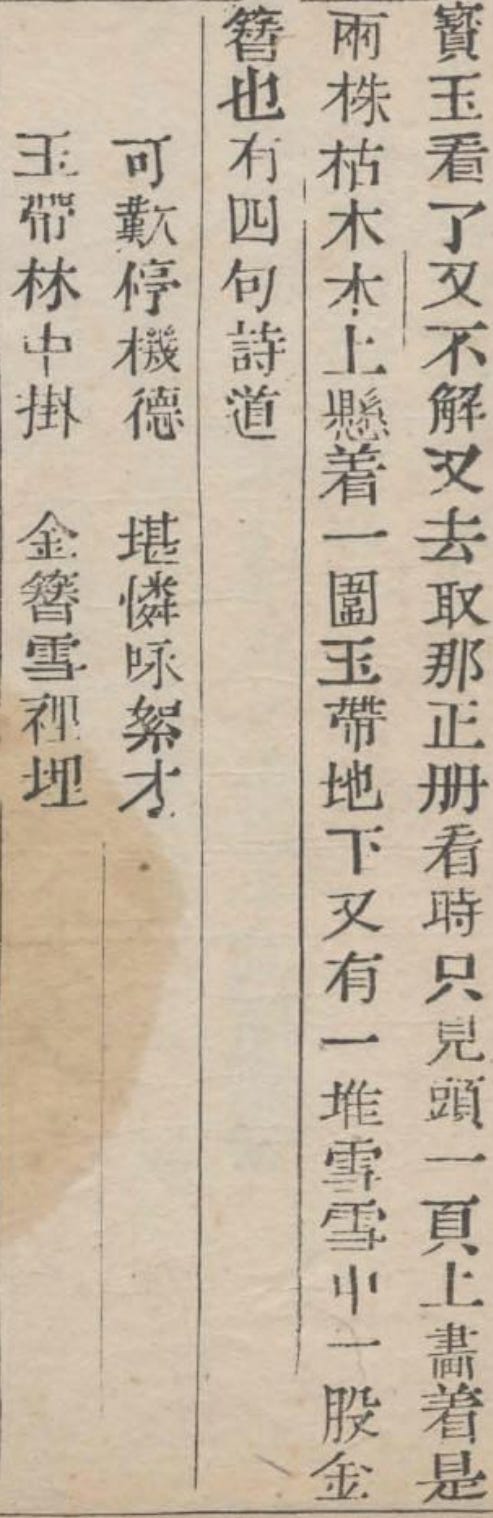 寳玉看了又不解又去取那正册看時只見頭一頁上畵着是
兩株枯木木上懸着一圍玉帶地下又有一堆雪雪中一股金
簪也有四句詩道
可歎停機德　堪憐咏絮才
玉帶林中掛　金簪雪裡埋